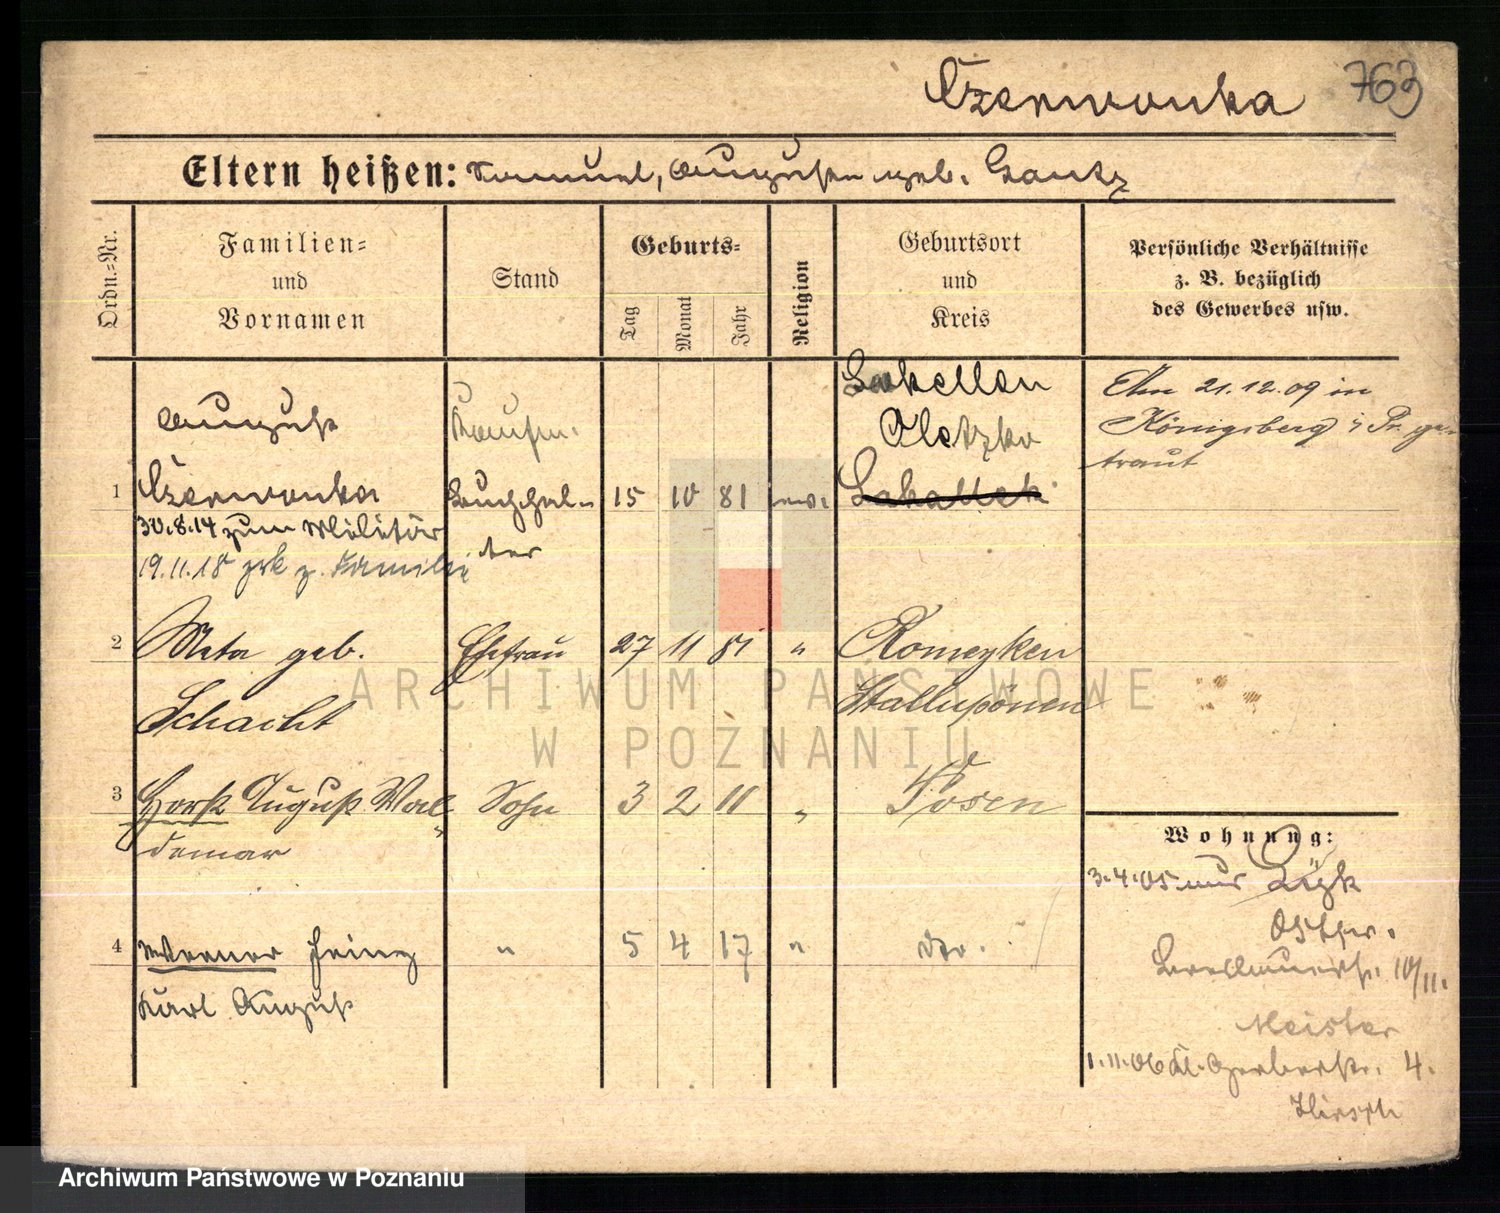 Czerwonka 763
Eltern heißen: Samuel, Auguste geb.
Ordn.-Nr.
Familien-
und
Vornamen
Stand
Geburts-
Tag
Monat
Jahr
Religion
Geburtsort
und
Kreis
Persönliche Verhältnisse
z. B. bezüglich
des Gewerbes usw.
1
August
Czerwonka
30.8.14 zum Militär
19.11.18 zrk z. Familie
Kaufm.
Buchhal-
ter
15 10 81 ev.
Oletzko
21.12.09 in
Königsberg i Pr. ge-
traut
2 Meta geb. Ehefrau 27 11 81 " Romeyken
Schacht Stallupönen
3 Horst August Wal- Sohn 3 2 11 " Posen
demar
4 Werner Heinz " 5 4 17 " do.
Karl August
Wohnung:
3.4.05 aus Lyk
Ostpr.
10/11.
Meister
1.11.06 Kl. Gerberstr. 4.
Hirsch
ARCHIWUM PAŃSTWOWE
W POZNANIU
Archiwum Państwowe w Poznaniu